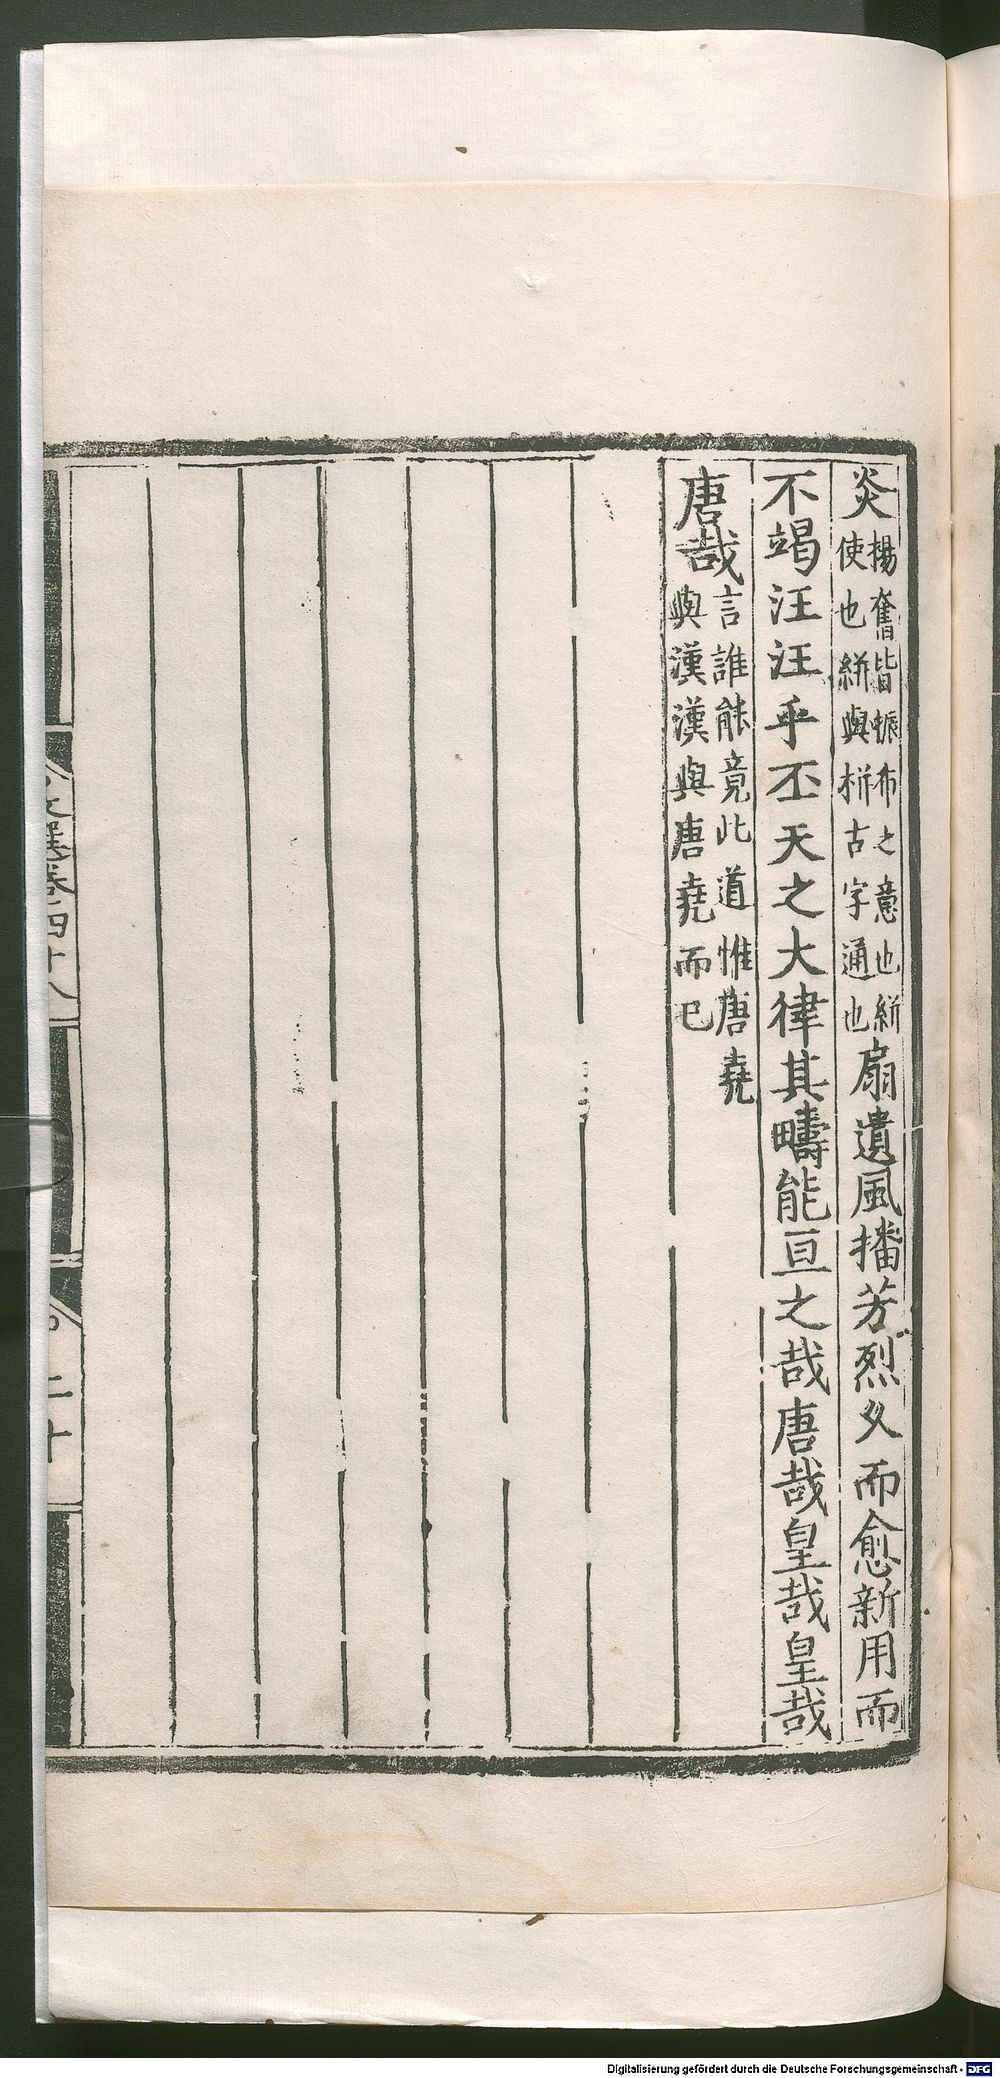 炎揚奮皆振布之意也絣使也絣與栟古字通也扇遺風播芳烈乆而愈新用而
不竭汪汪乎丕天之大律其疇能亘之哉唐哉皇哉皇哉
唐哉言誰能竟此道惟唐堯與漢漢與唐堯而已
文選卷四十八
二十
Digitalisierung gefördert durch die Deutsche Forschungsgemeinschaft - DFG